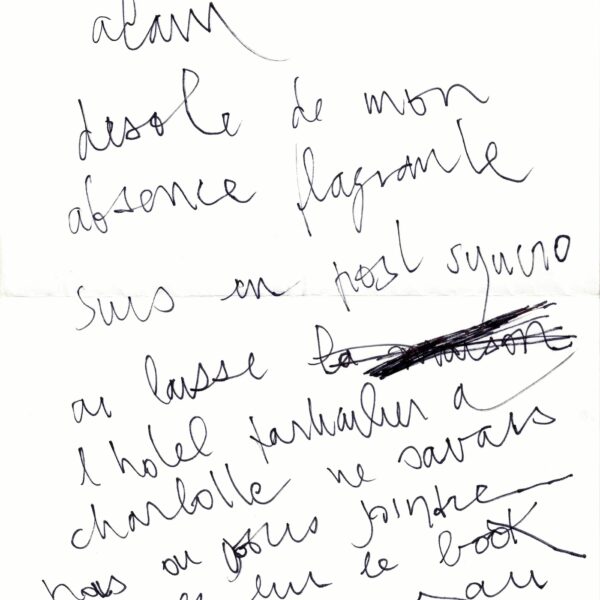 alain
desole de mon
absence flagrante
suis en post syncro
ai laisse la maison
l hotel particulier a
charlotte ne savais
pas ou vous joindre
sur le book